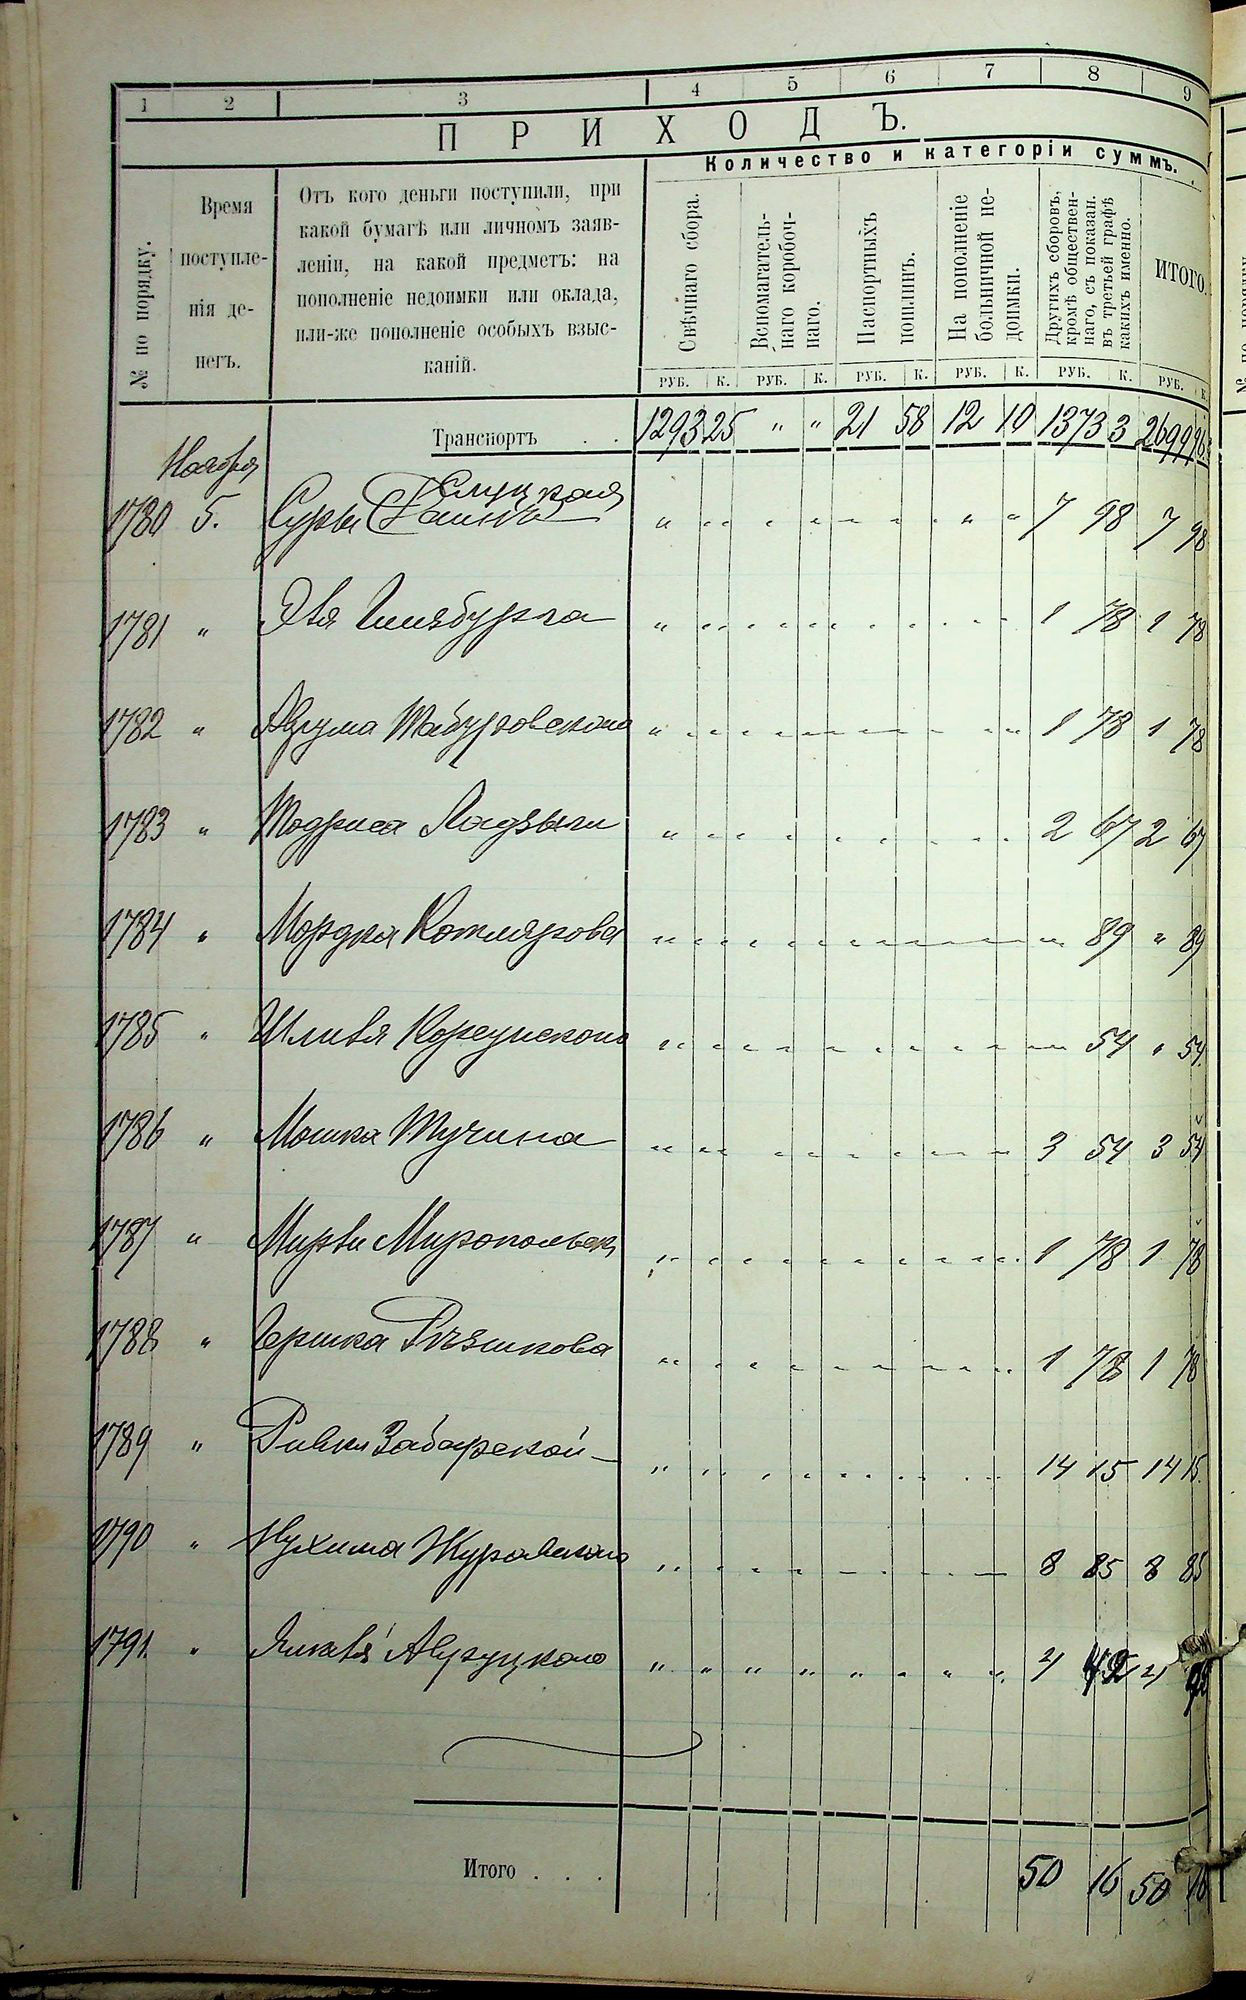 1 2 3 4 5 6 7 8 9
ПРИХОДЪ.
Количество и категоріи суммъ.
№ по порядку.
Время поступле-
нія де-
негъ.
Отъ кого деньги поступили, при
какой бумагѣ или личномъ заяв-
леніи, на какой предметъ: на
пополненіе недоимки или оклада,
или-же пополненіе особыхъ взыс-
каній.
Свѣчнаго сбора.
Вспомагатель-
наго коробоч-
наго.
Паспортныхъ
пошлинъ.
На пополненіе
больничной не-
доимки.
Другихъ сборовъ,
кромѣ обществен-
наго, съ показан.
въ третьей графѣ
какихъ именно.
ИТОГО.
РУБ. К. РУБ. К. РУБ. К. РУБ. К. РУБ. К. РУБ. К.
Транспортъ . . 1293 25 " " 21 58 12 10 1373 3 2699 96
Ноября
Слуцкая
1780 5. Суры 7 98 7 98
1781 " Эля Гинзбурга 1 78 1 78
1782 " 1 78 1 78
1783 " 2 67 2 67
1784 " Мордка Котлярова " 89 " 89
1785 " Корсунскаго " 54 " 54.
1786 " Мошка Тучина 3 54 3 54
1787 " Миропольск 1 78 1 78
1788 " Гершка 1 78 1 78
1789 " Ривки Забарской 14 15 14 15.
1790 " Нухима Журавскаго 8 85 8 85
1791. " Авруцкаго 4 4
Итого . . . 50 16 50 16